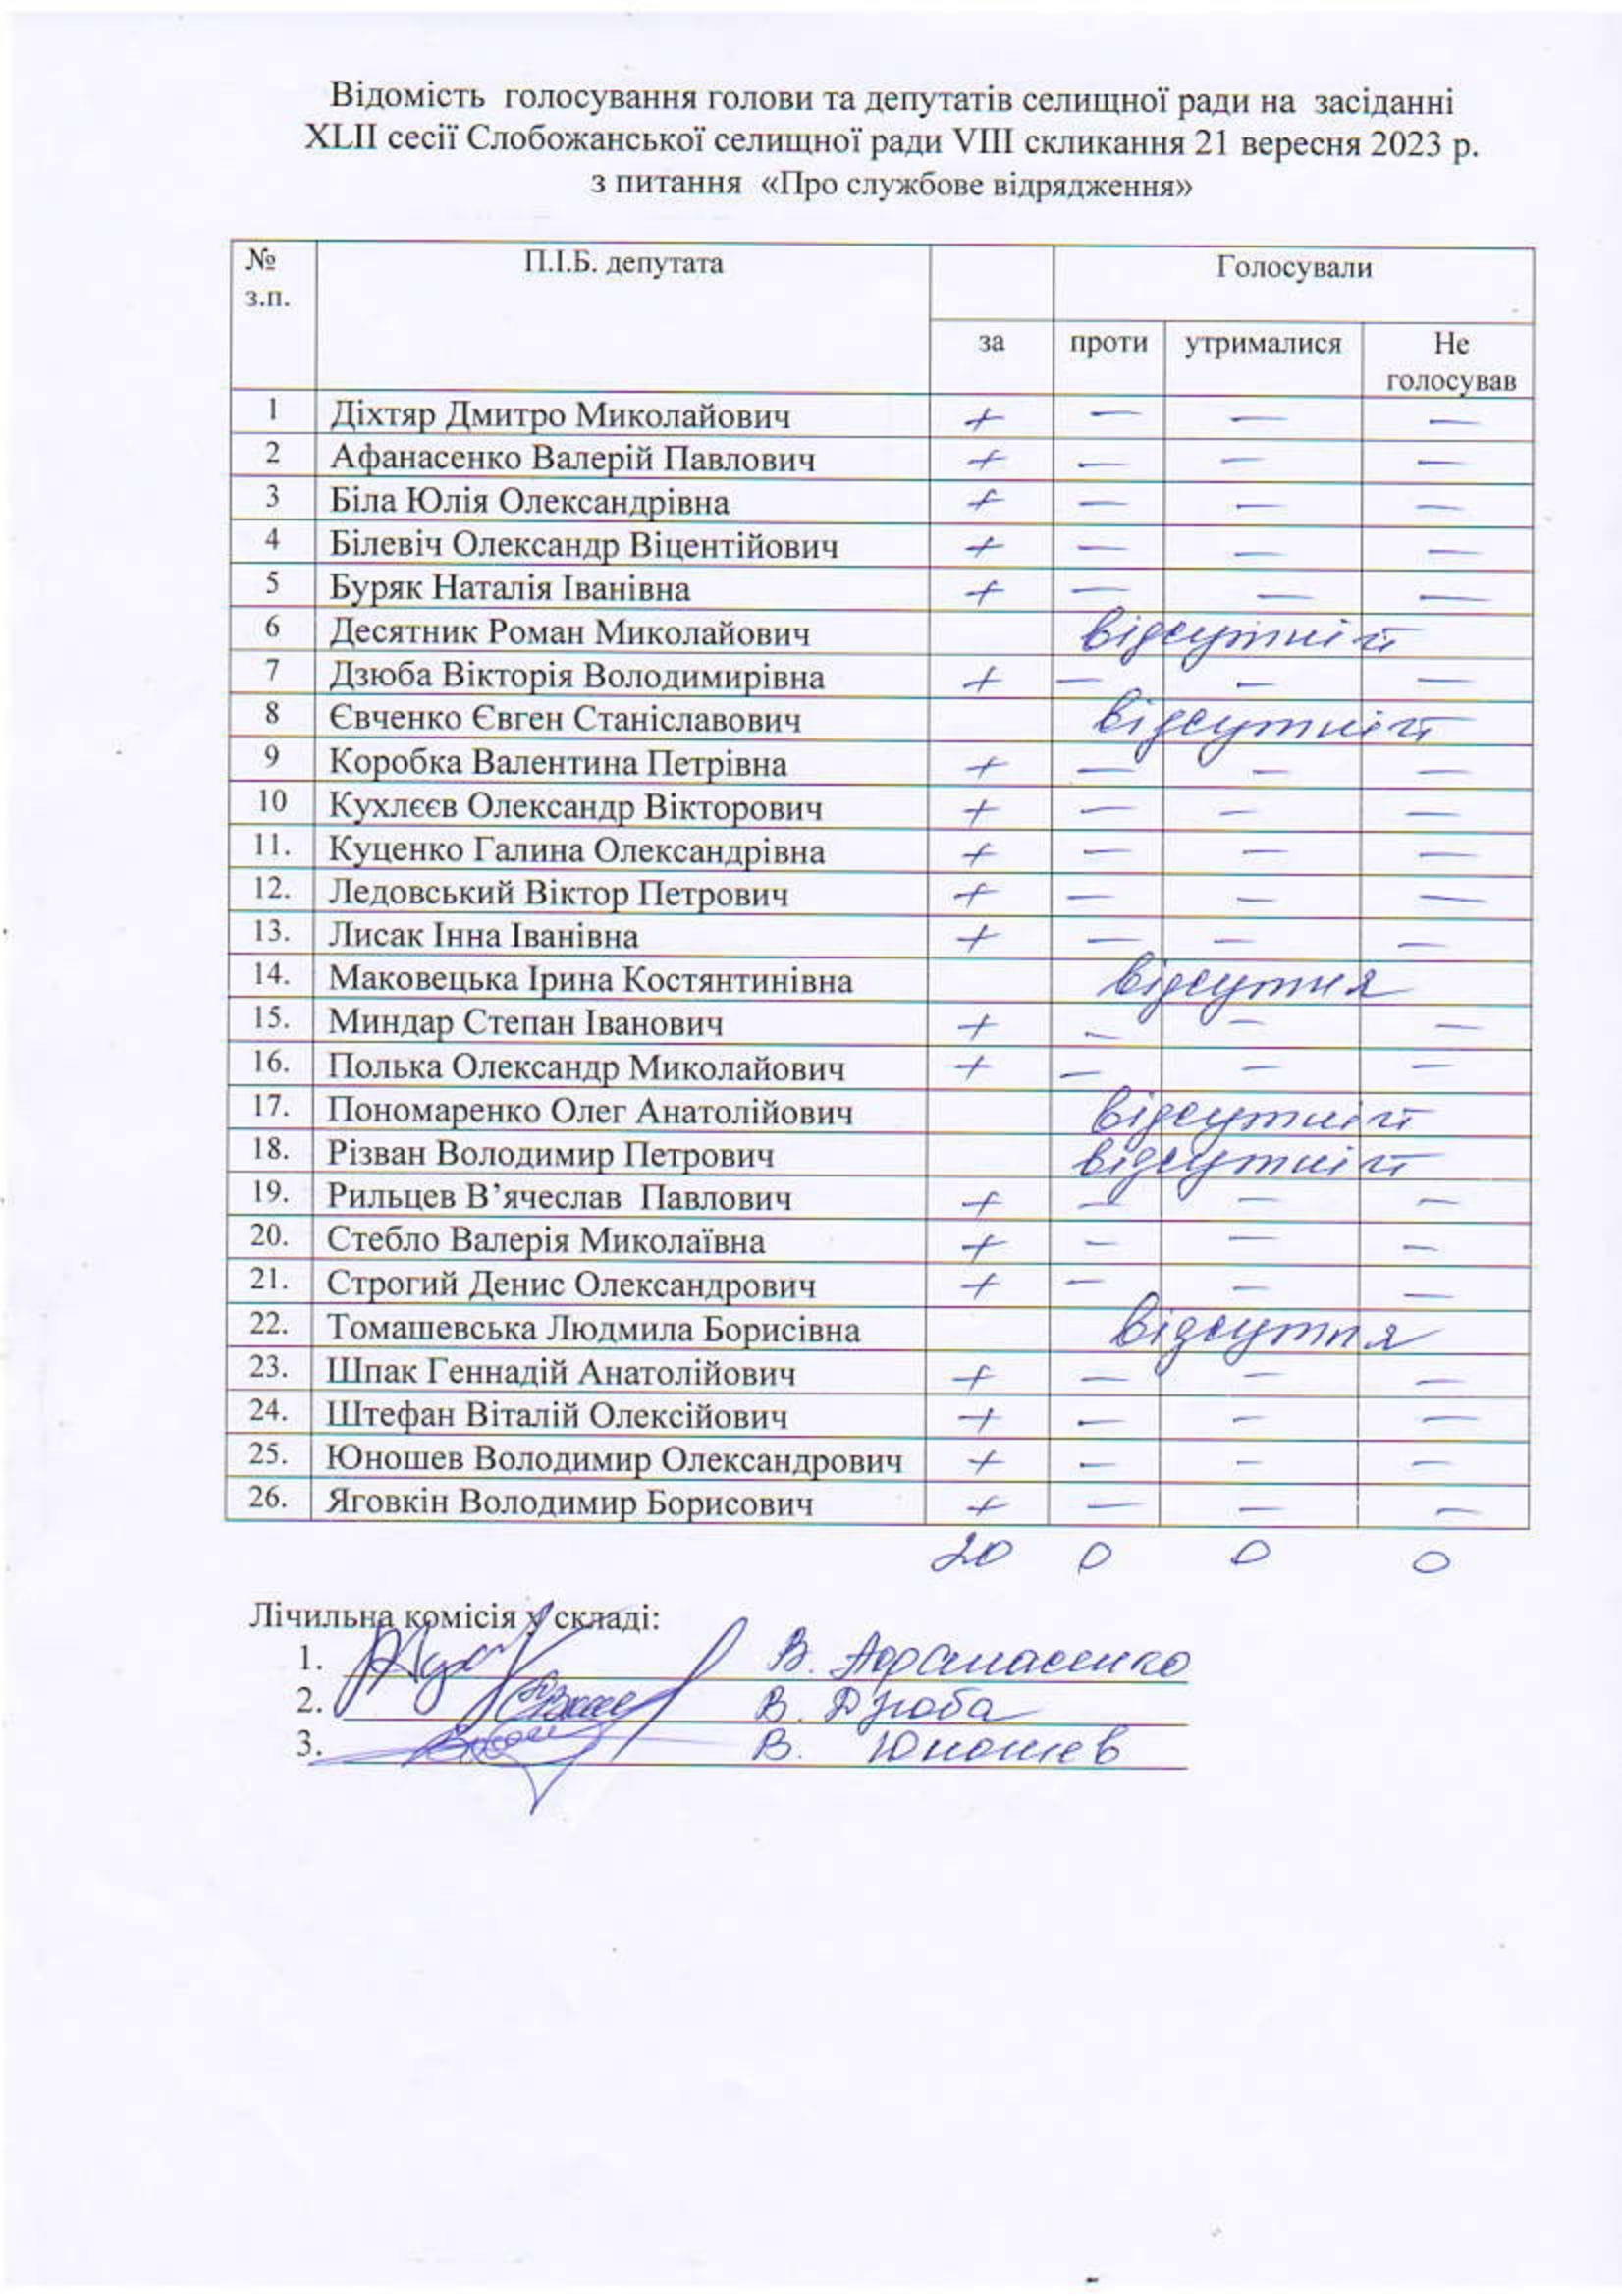 Відомість голосування голови та депутатів селищної ради на засіданні
XLII сесії Слобожанської селищної ради VIII скликання 21 вересня 2023 р.
з питання «Про службове відрядження»
№ з.п. П.І.Б. депутата Голосували
за проти утрималися Не голосував
1 Діхтяр Дмитро Миколайович + — — —
2 Афанасенко Валерій Павлович + — — —
3 Біла Юлія Олександрівна + — — —
4 Білевіч Олександр Віцентійович + — — —
5 Буряк Наталія Іванівна + — — —
6 Десятник Роман Миколайович відсутній
7 Дзюба Вікторія Володимирівна + — — —
8 Євченко Євген Станіславович відсутній
9 Коробка Валентина Петрівна + — — —
10 Кухлєєв Олександр Вікторович + — — —
11. Куценко Галина Олександрівна + — — —
12. Ледовський Віктор Петрович + — — —
13. Лисак Інна Іванівна + — — —
14. Маковецька Ірина Костянтинівна відсутня
15. Миндар Степан Іванович + — — —
16. Полька Олександр Миколайович + — — —
17. Пономаренко Олег Анатолійович відсутній
18. Різван Володимир Петрович відсутній
19. Рильцев В’ячеслав Павлович + — — —
20. Стебло Валерія Миколаївна + — — —
21. Строгий Денис Олександрович + — — —
22. Томашевська Людмила Борисівна відсутня
23. Шпак Геннадій Анатолійович + — — —
24. Штефан Віталій Олексійович + — — —
25. Юношев Володимир Олександрович + — — —
26. Яговкін Володимир Борисович + — — —
20 0 0 0
Лічильна комісія у складі:
1. В. Афанасенко
2. В. Дзюба
3. В. Юношев